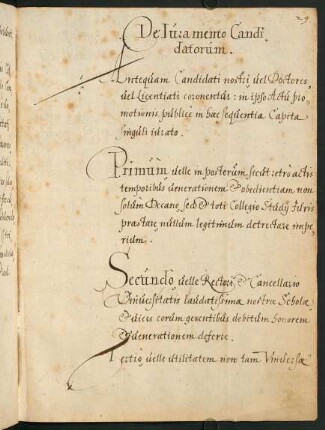 29
De Iuramento Candi
datorum.
Antequam Candidati nostri vel Doctores,
vel Licentiati coronentur: in ipso Actu pro
motionis publice in hæc sequentia Capita
singuli iurato.
Primum velle in posterum, sicut retro actis
temporibus venerationem & obedientiam non
solùm Decano, sed & toti Collegio Studij
præstare, nullum legitimum detrectare impe,
rium.
Secundo velle Rectori, & Cancellario
Vniuersitatis laudatissimæ nostræ Scholæ
& vices eorum gerentibus debitum honorem
& venerationem deferre.
Tertio velle vtilitatem non tam Vniuersæ